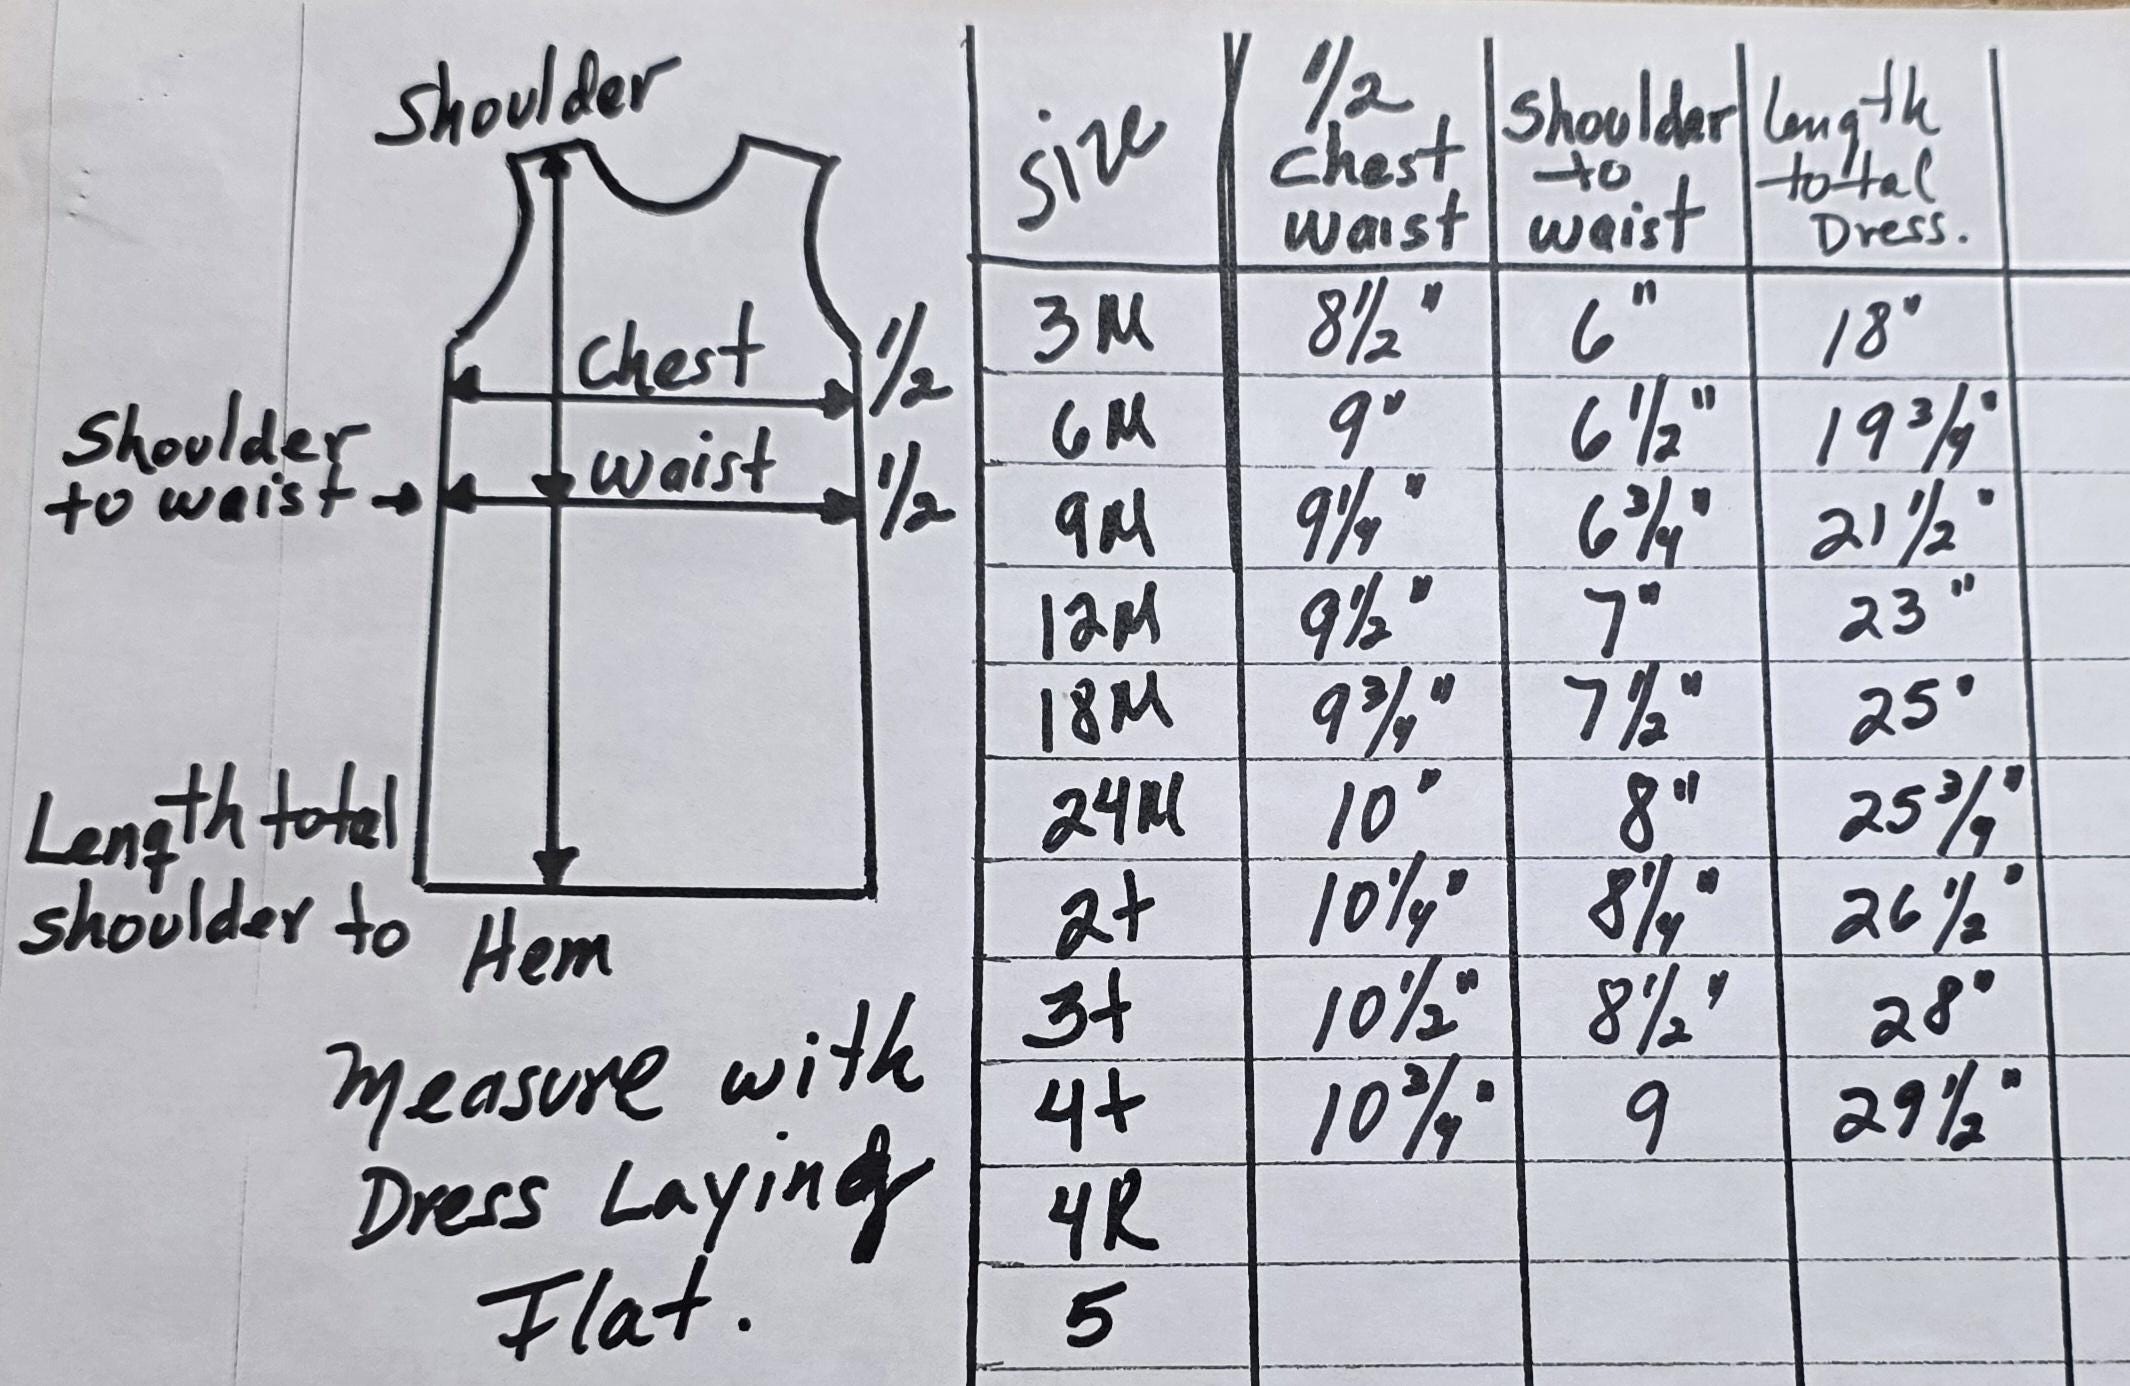 Shoulder
Chest 1/2
Waist 1/2
Shoulder
to waist →
Length total
shoulder to Hem
Measure with
Dress Laying
Flat.
Size | 1/2 Chest Waist | Shoulder to waist | Length total Dress.
3M | 8 1/2" | 6" | 18"
6M | 9" | 6 1/2" | 19 3/4"
9M | 9 1/4" | 6 3/4" | 21 1/2"
12M | 9 1/2" | 7" | 23"
18M | 9 3/4" | 7 1/2" | 25"
24M | 10" | 8" | 25 3/4"
2t | 10 1/4" | 8 1/4" | 26 1/2"
3t | 10 1/2" | 8 1/2" | 28"
4t | 10 3/4" | 9 | 29 1/2"
4R
5